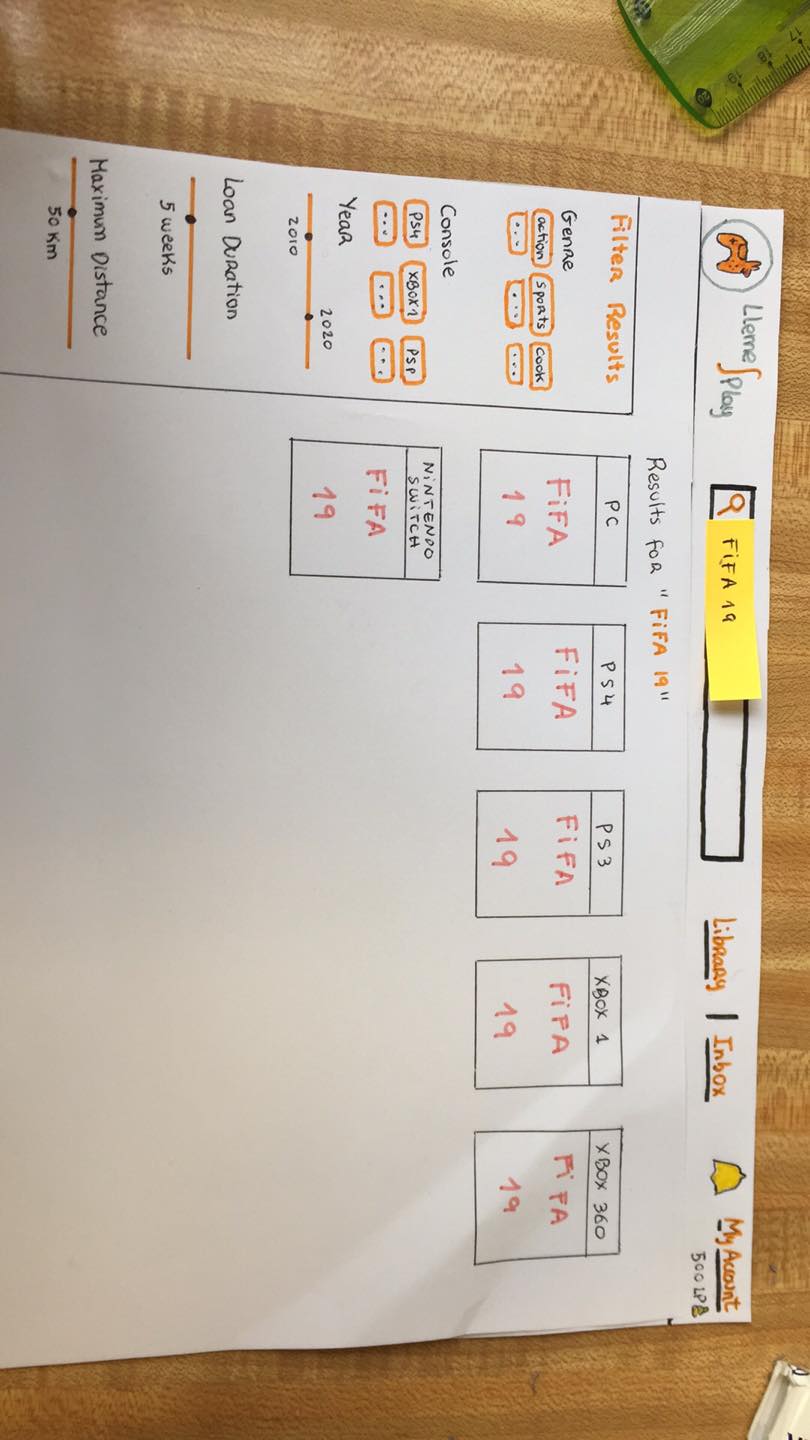 Lleme
Play
FiFA 19
Library | Inbox
My Account
500 LP
Results for "FiFA 19"
Filter Results
Genre
action sports cook
... ... ...
Console
PS4 XBOX1 PSP
... ... ...
Year
2020
2010
Loan Duration
5 weeks
Maximum Distance
50 Km
PC
FiFA
19
PS4
FiFA
19
PS3
FiFA
19
XBOX 1
FiFA
19
XBOX 360
FiFA
19
NiNTENDO
SWiTCH
FiFA
19
17